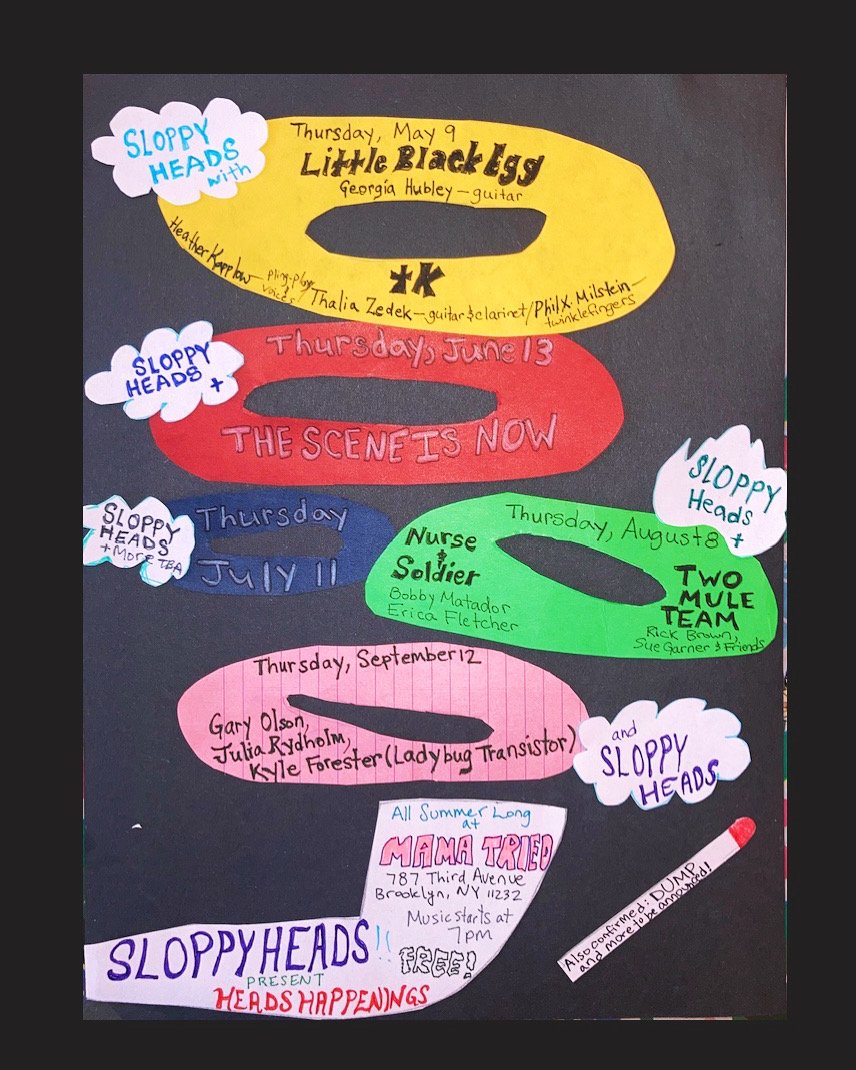 SLOPPY
HEADS
with
Thursday, May 9
Little Black Egg
Georgia Hubley — guitar
tK
Heather Kapplow — pling-plays
& voices / Thalia Zedek — guitar & clarinet / Phil X. Milstein —
twinklefingers
SLOPPY
HEADS +
Thursday, June 13
THE SCENE IS NOW
SLOPPY
HEADS
+ More TBA
Thursday
July 11
SLOPPY
Heads
+
Thursday, August 8
Nurse
&
Soldier
Bobby Matador
Erica Fletcher
TWO
MULE
TEAM
Rick Brown,
Sue Garner & Friends
Thursday, September 12
Gary Olson,
Julia Rydholm,
Kyle Forester (Ladybug Transistor)
and
SLOPPY
HEADS
All Summer Long
at
MAMA TRIED
787 Third Avenue
Brooklyn, NY 11232
Music starts at
7pm
FREE!
SLOPPY HEADS !!
PRESENT
HEADS HAPPENINGS
Also confirmed: DUMP
and more to be announced!